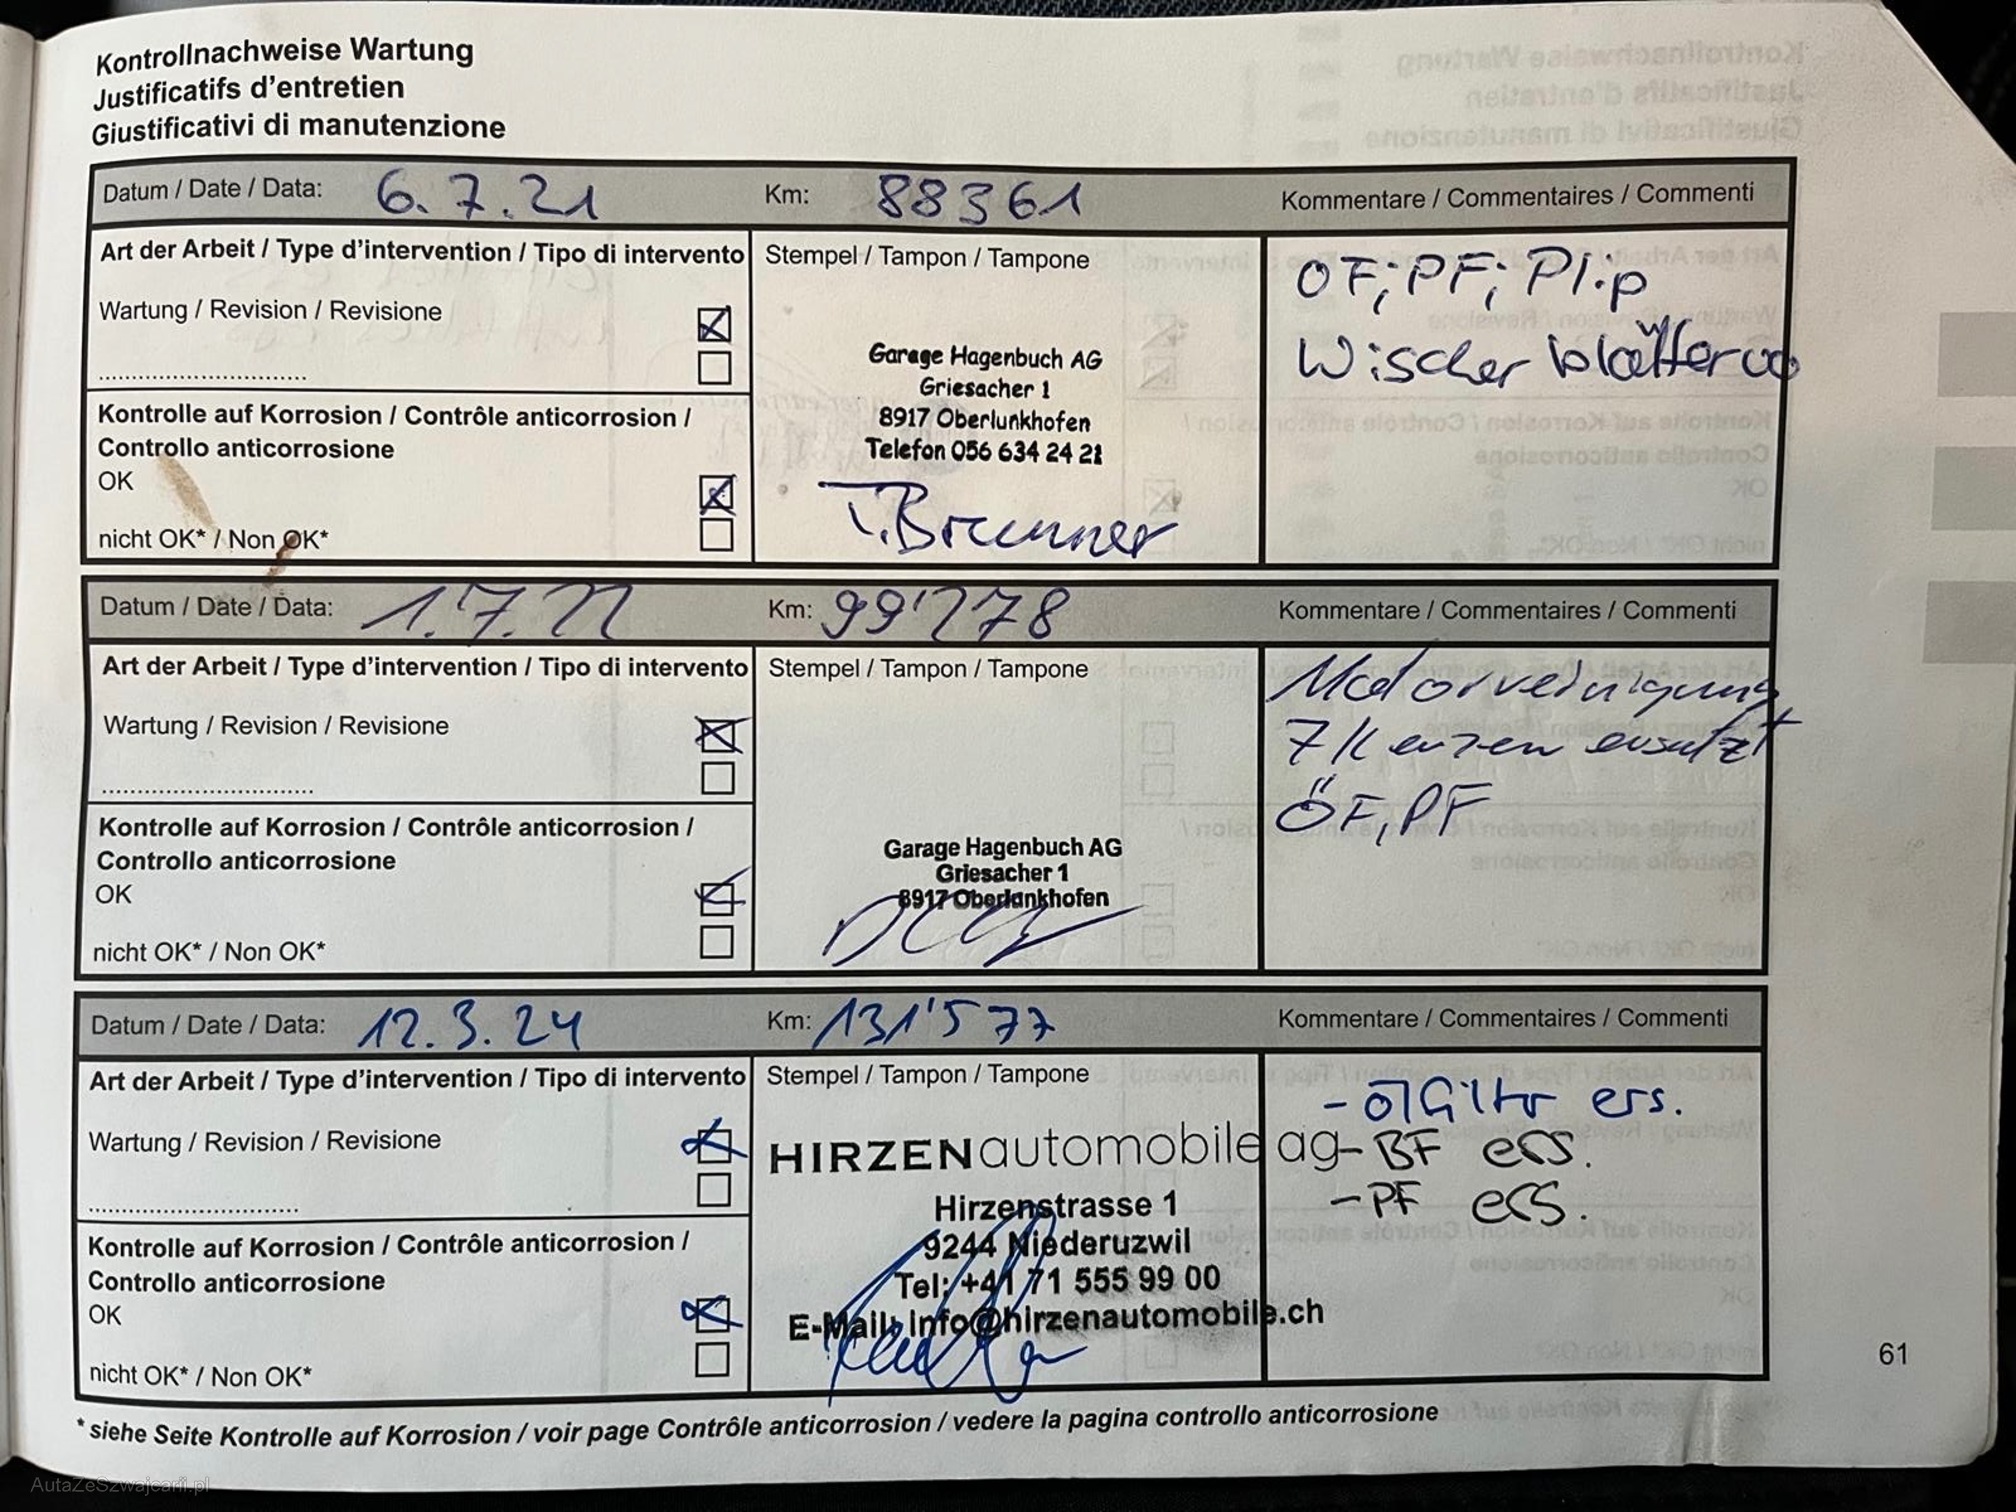 Kontrollnachweise Wartung
Justificatifs d'entretien
Giustificativi di manutenzione
Datum / Date / Data: 6.7.21 Km: 88361 Kommentare / Commentaires / Commenti
Art der Arbeit / Type d'intervention / Tipo di intervento Stempel / Tampon / Tampone
ÖF; PF; Pl.p
Wartung / Revision / Revisione
Wischerblätter
Garage Hagenbuch AG
Griesacher 1
8917 Oberlunkhofen
Telefon 056 634 24 21
Kontrolle auf Korrosion / Contrôle anticorrosion /
Controllo anticorrosione
OK
T. Brunner
nicht OK* / Non OK*
Datum / Date / Data: 1.7.22 Km: 99'278 Kommentare / Commentaires / Commenti
Art der Arbeit / Type d'intervention / Tipo di intervento Stempel / Tampon / Tampone
Motorreinigung
Wartung / Revision / Revisione
ersetzt
ÖF, PF
Kontrolle auf Korrosion / Contrôle anticorrosion /
Controllo anticorrosione
OK
Garage Hagenbuch AG
Griesacher 1
8917 Oberlunkhofen
nicht OK* / Non OK*
Datum / Date / Data: 12.3.24 Km: 131'577 Kommentare / Commentaires / Commenti
Art der Arbeit / Type d'intervention / Tipo di intervento Stempel / Tampon / Tampone
- Ölfilter ers.
- BF ers.
- PF ers.
Wartung / Revision / Revisione
HIRZENautomobile ag
Hirzenstrasse 1
9244 Niederuzwil
Tel: +41 71 555 99 00
E-Mail: info@hirzenautomobile.ch
Kontrolle auf Korrosion / Contrôle anticorrosion /
Controllo anticorrosione
OK
nicht OK* / Non OK*
61
* siehe Seite Kontrolle auf Korrosion / voir page Contrôle anticorrosion / vedere la pagina controllo anticorrosione
AutaZeSzwajcarii.pl